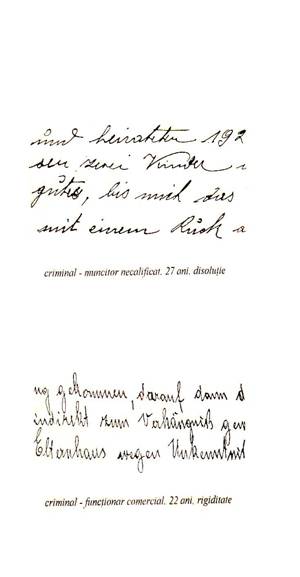 und heirateten 192
den zwei Kinder
gutes, bis mich das
mit einem Ruck a
criminal - muncitor necalificat. 27 ani, disoluție
ng gekommen, darauf dann d
indirekt zum Vahängnis gew
Eltanhaus wegen Unkenntnis
criminal - funcționar comercial. 22 ani, rigiditate